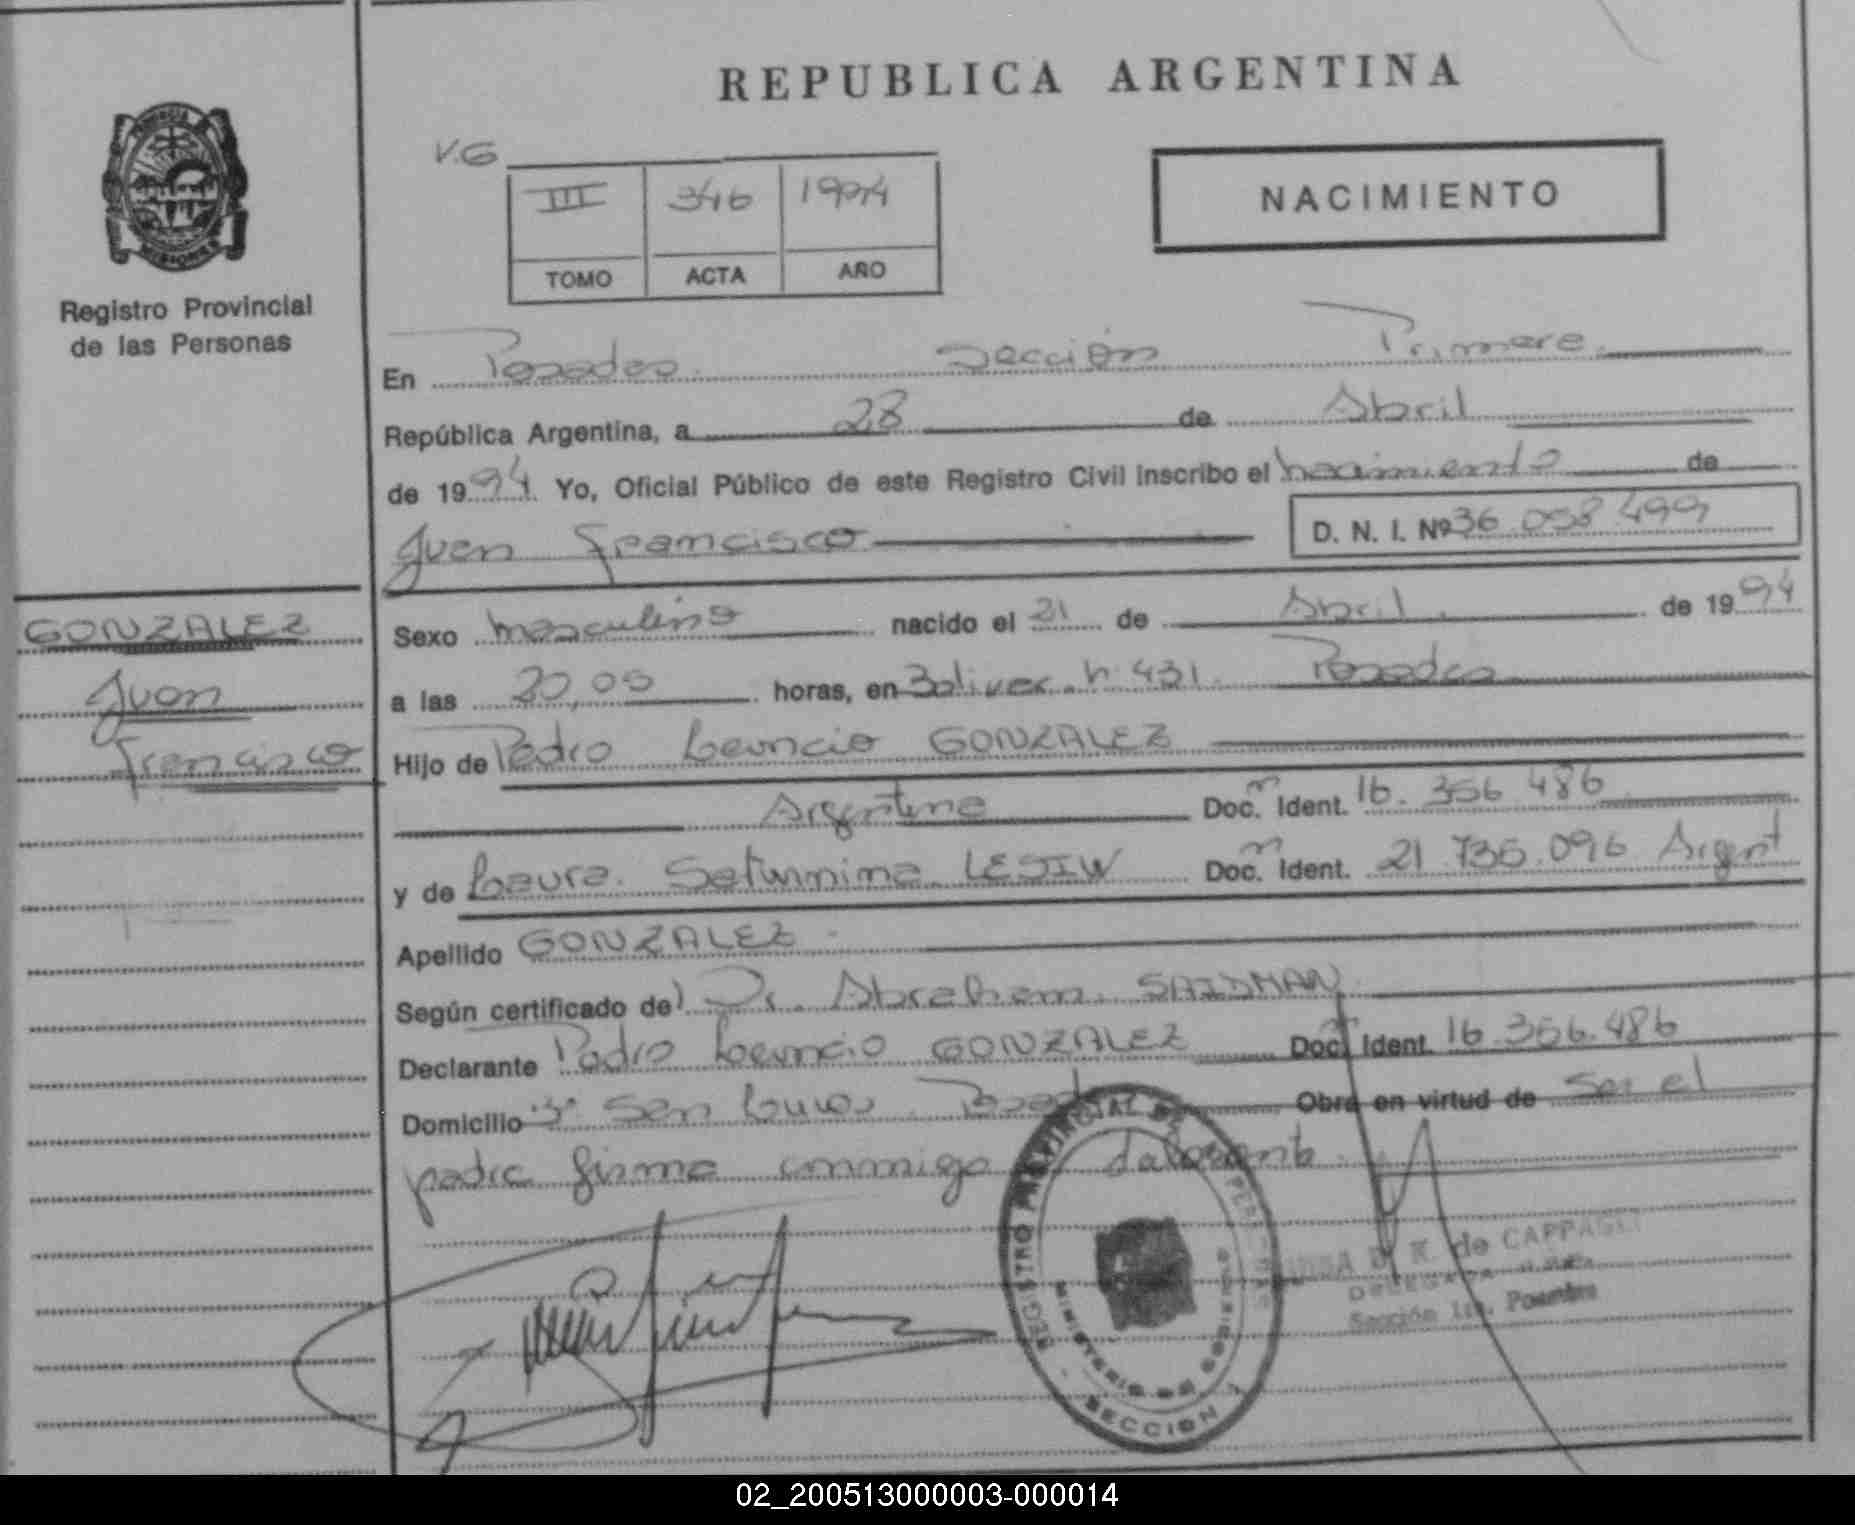 REPUBLICA ARGENTINA
Registro Provincial
de las Personas
V.G
III 346 1994
TOMO ACTA AÑO
NACIMIENTO
En Posadas Sección Primera
República Argentina, a 28 de Abril
de 1994 Yo, Oficial Público de este Registro Civil inscribo el nacimiento de
Juan Francisco D. N. I. Nº 36.058.499
GONZALEZ
Juan
Francisco
Sexo masculino nacido el 21 de Abril de 1994
a las 20,05 horas, en Bolivar n 431 Posadas
Hijo de Pedro Leuncio GONZALEZ
Argentina Doc. Ident. 16.356.486
y de Laura Saturnina LESIW Doc. Ident. 21.735.096 Argent
Apellido GONZALEZ
Según certificado de Dr. Abraham SAIDMAN
Declarante Pedro Leuncio GONZALEZ Doc. Ident. 16.356.486
Domicilio San Posadas Obra en virtud de ser el
padre firma conmigo
REGISTRO PROVINCIAL DE LAS PERSONAS
MINISTERIO DE GOBIERNO
SECCION 1
de CAPPAGLI
DELEGADA
Sección 1ra. Posadas
02_200513000003-000014